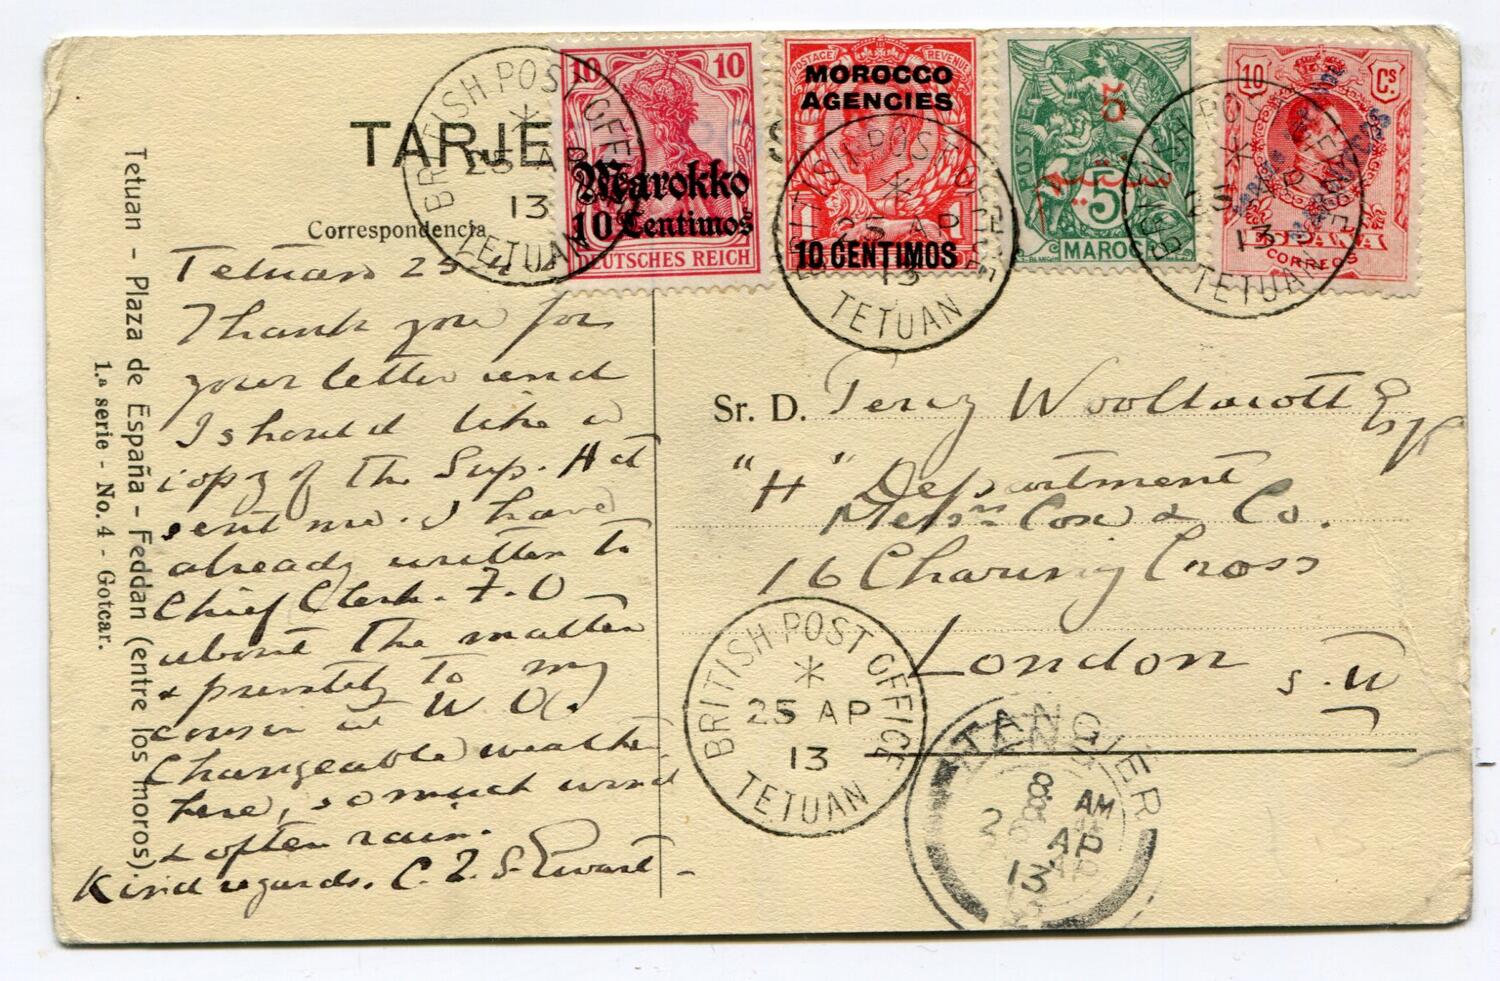 TARJE
Correspondencia
10 10
Marokko
10 Centimos
DEUTSCHES REICH
POSTAGE REVENUE
MOROCCO
AGENCIES
1 1
10 CENTIMOS
POSTES
5
5
MAROC
10 Cs
MARRUECOS
ESPAÑA
CORREOS
BRITISH POST OFFICE
25 AP
13
TETUAN
BRITISH POST OFFICE
25 AP
13
TETUAN
BRITISH POST OFFICE
25 AP
13
TETUAN
Tetuan 25
Thank you for
your letter and
I should like a
copy of the Sup. Hat
sent me. I have
already written to
Chief Clerk. F.O
about the matter
& privately to my
cousin at W.O.
Changeable weather
here, so much wind
& often rain.
Kind regards. C. Ewart
Sr. D. Percy Woollacott Esqr
"H" Department
Messrs Cox & Co.
16 Charing Cross
London S.W
BRITISH POST OFFICE
25 AP
13
TETUAN
TANGIER
8 AM
2 AP
13
Tetuan - Plaza de España - Feddan (entre los moros).
1.ª serie - No. 4 - Gotcar.